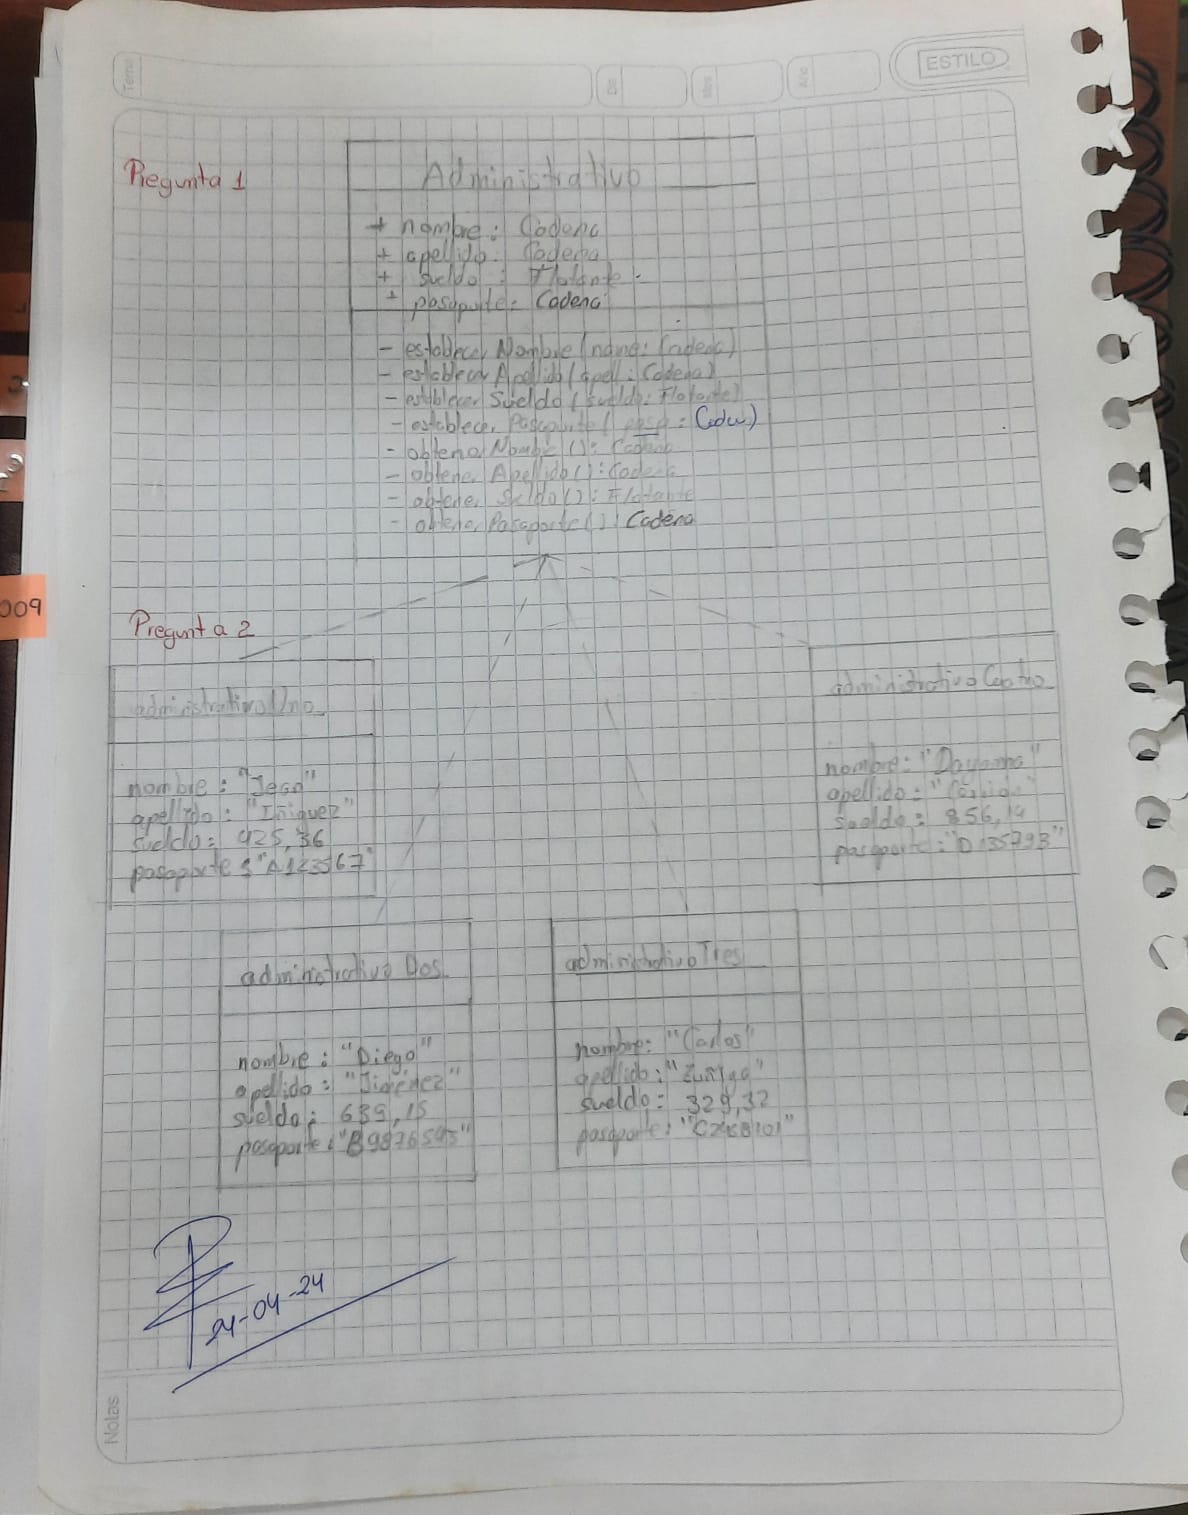 Tema
Día
Mes
Año
ESTILO
Pregunta 1
Administrativo
+ nombre: Cadena
+ apellido: Cadena
+ sueldo: Flotante
+ pasaporte: Cadena
- establecer Nombre (name: Cadena)
- establecer Apellido (apell: Cadena)
- establecer Sueldo (sueldo: Flotante)
- establecer Pasaporte (pasp: Caden)
- obtener Nombre (): Cadena
- obtener Apellido (): Cadena
- obtener Sueldo (): Flotante
- obtener Pasaporte (): Cadena
009
Pregunta 2
administrativo Uno
nombre: "Jean"
apellido: "Iñiguez"
sueldo: 425,36
pasaporte: "A123567"
administrativo Cuatro
nombre: "Dayanna"
apellido:
sueldo: 856,14
pasaporte: "D135793"
administrativo Dos
nombre: "Diego"
apellido: "Jimenez"
sueldo: 639,15
pasaporte:
administrativo Tres
nombre: "Carlos"
apellido: "Zuñiga"
sueldo: 329,32
pasaporte: "C2468101"
24-04-24
Notas